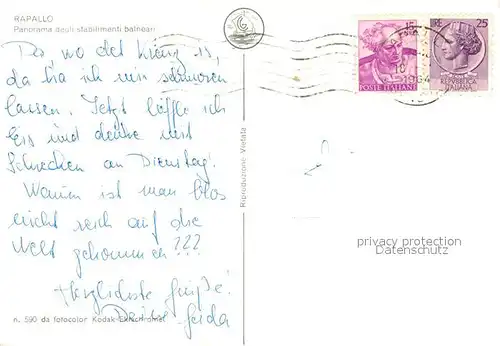 RAPALLO
Panorama degli stabilimenti balneari
Da wo das Kreuz is,
da hab ich mir schmoren
lassen. Jetzt löffle ich
Eis und denke mit
Schrecken an Dienstag.
Warum ist man blos
nicht reich auf die
Welt gekommen???
Herzlichste Grüße!
Deine
n. 590 da fotocolor Kodak Ektachrome
Riproduzione Vietata
15
POSTE ITALIANE
LIRE 25
REPUBBLICA
ITALIANA
1964
privacy protection
Datenschutz